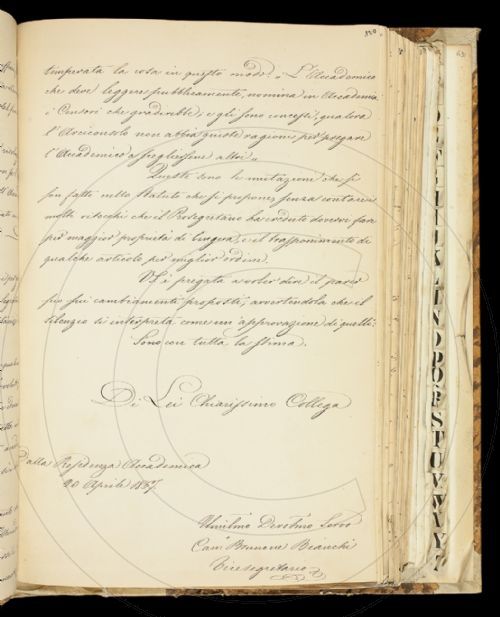 320.
temperata la cosa in questo modo: "L'Accademico
che deve leggere pubblicamente, nomina in Accademia
i Censori che gradirebbe, e gli sono concessi, qualora
l'Arciconsolo non abbia giuste ragioni per pregare
l'Accademico a scegliersene altri"
Queste sono le mutazioni che si
son fatte nello Statuto che si propone, senza contare
molti ritocchi che il Prosegretario ha creduto dovervi fare
per maggior proprietà di lingua, e il trasponimento di
qualche articolo per miglior ordine.
V.S. è pregata a voler dire il pare
su i cambiamenti proposti; avvertendola che il
silenzio si interpreta come un'approvazione di quelli.
Sono con tutta la stima.
Di Lei Chiarissimo Collega
Dalla Residenza Accademica
20 Aprile 1857
Umilmo Devotmo Servo
Can.º Brunone Bianchi
Vicesegretario
L
N
O
P
Q
R
S
T
U
V
W
X
Y
Z